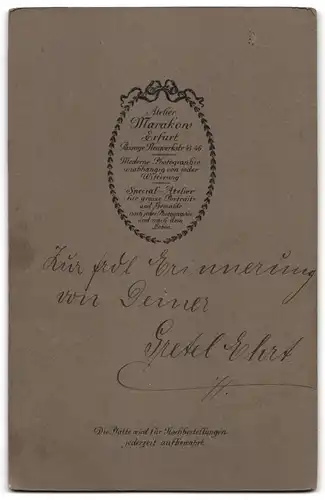 Atelier
Marakow
Erfurt
Lange Neuwerkstr. 45-46
Moderne Photographie
unabhängig von jeder
Witterung
Special-Atelier
für grosse Portraits
und Gemälde
nach jeder Photographie
und nach dem
Leben.
Zur frdl Erinnerung
von Deiner
Gretel Ehrt
Die Platte wird für Nachbestellungen
jederzeit aufbewahrt.